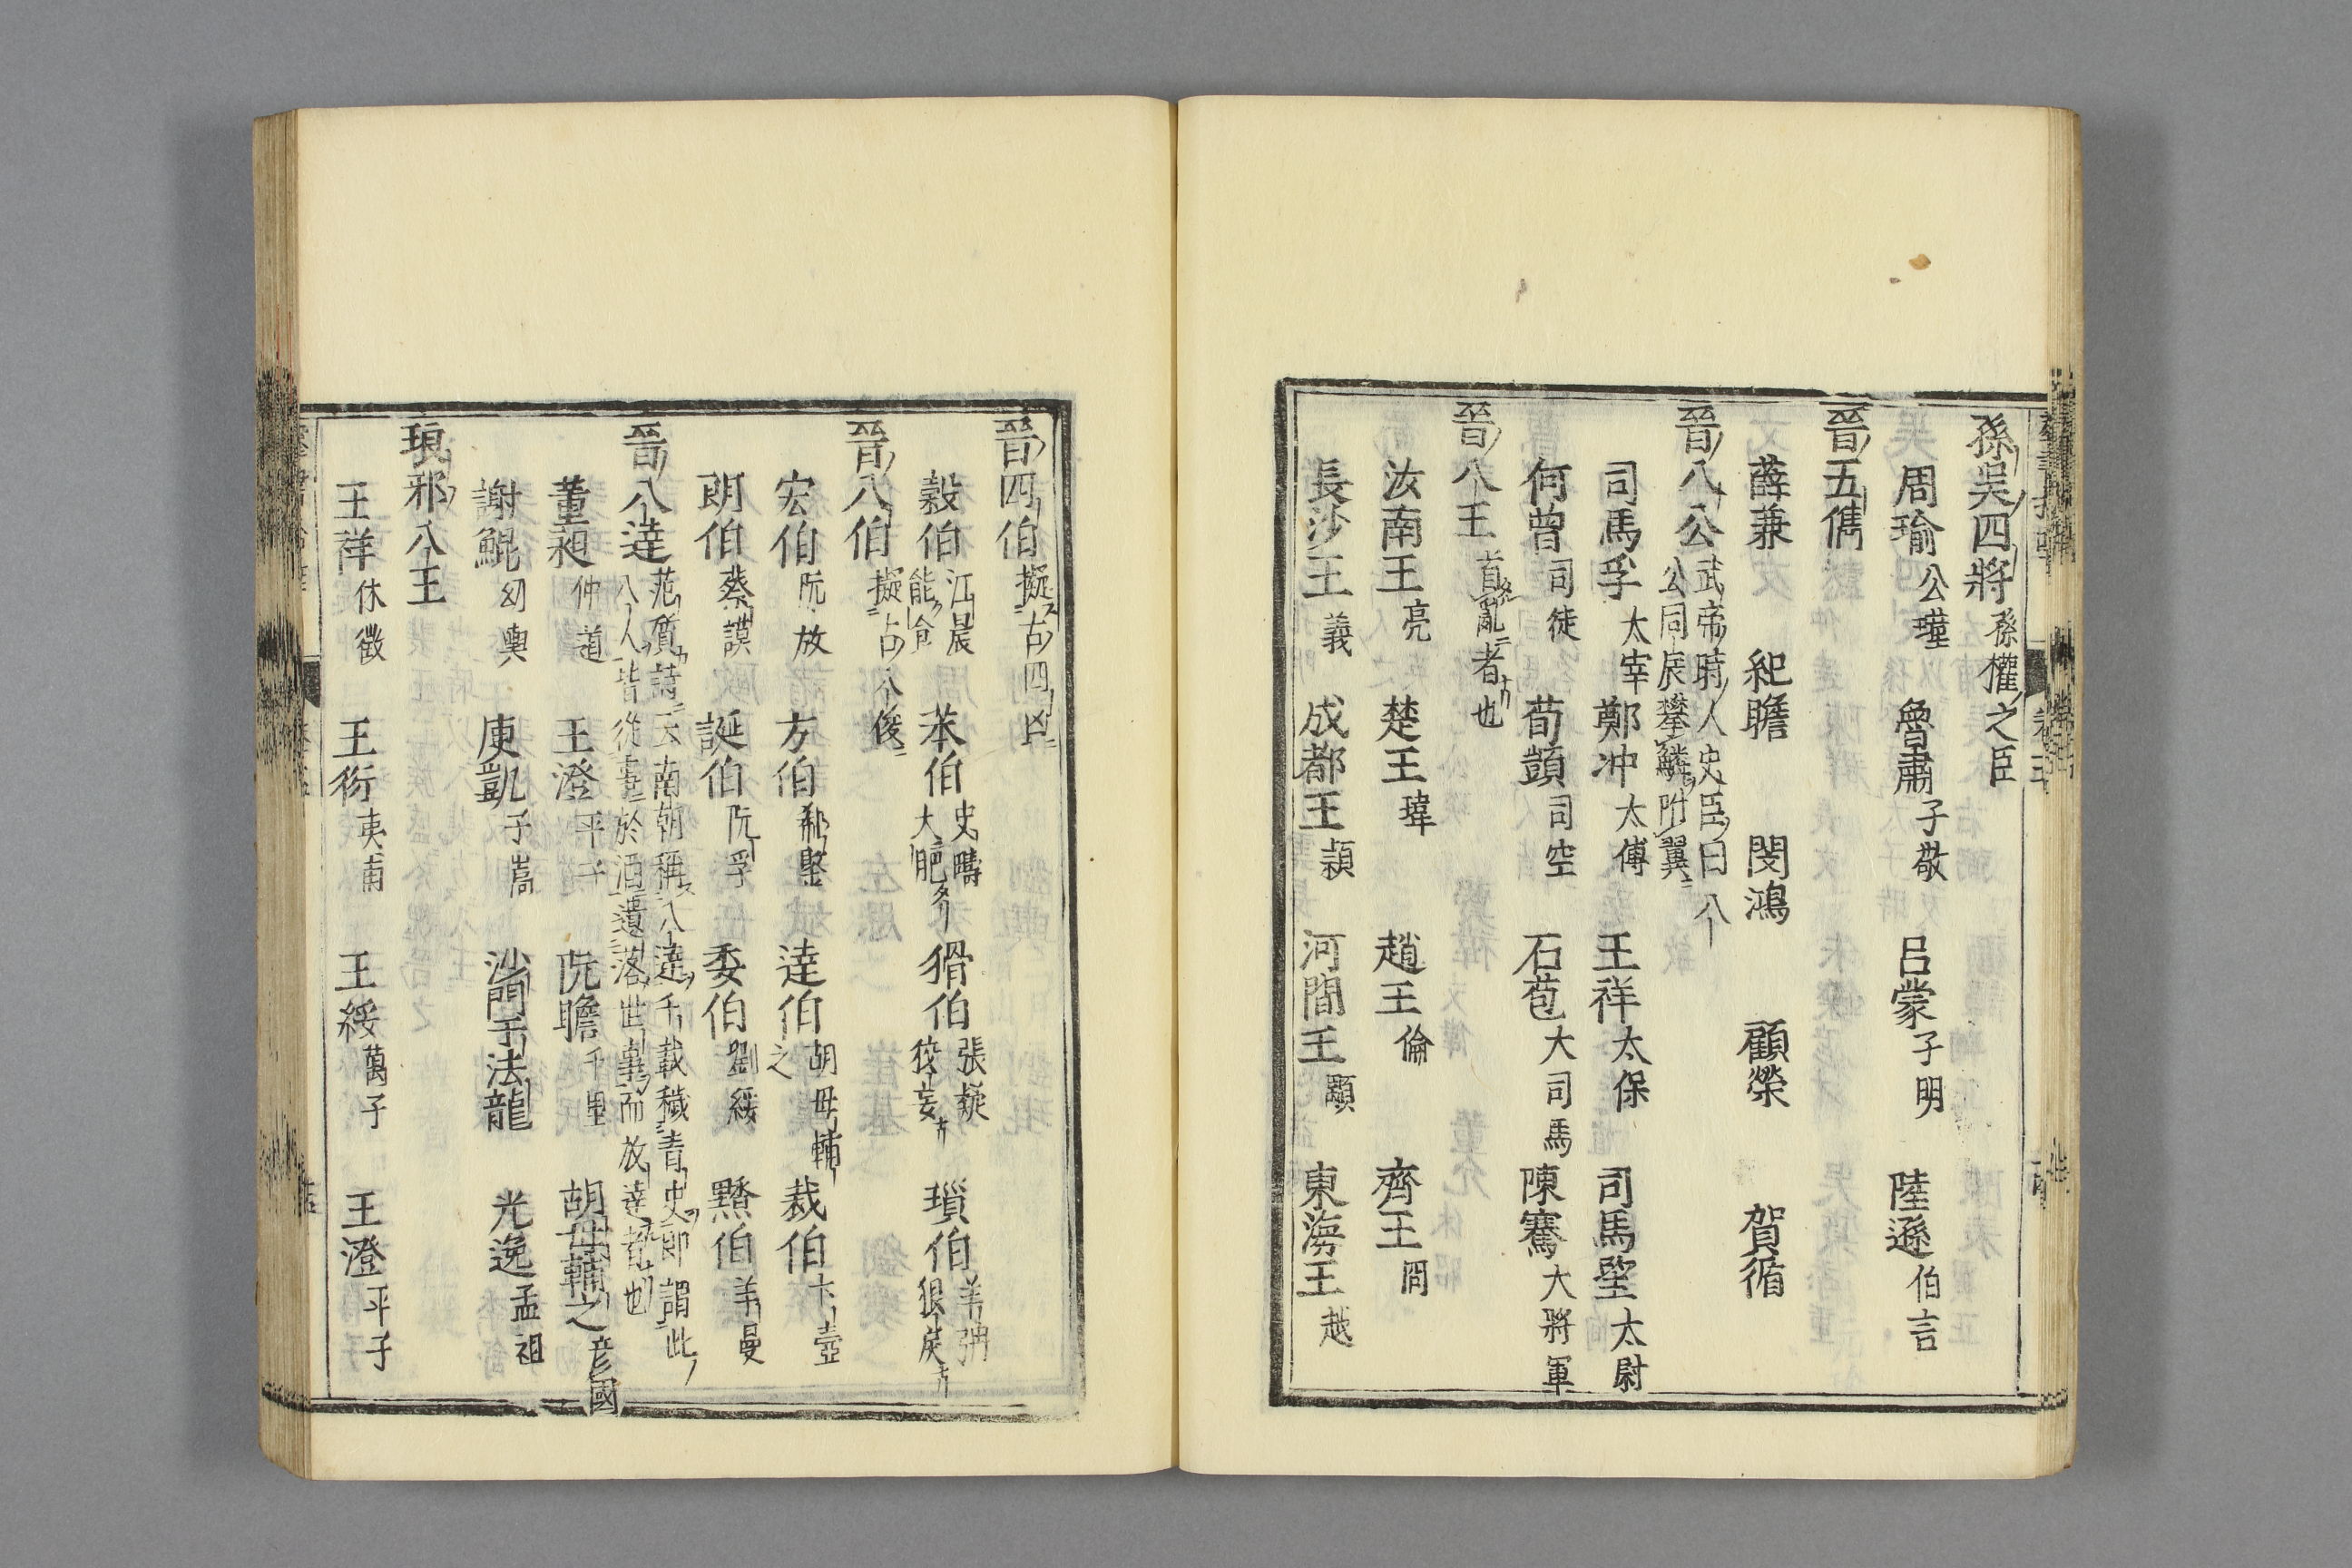 孫吳四將孫權之臣
周瑜公瑾 魯肅子敬 呂蒙子明 陸遜伯言
晉五儁
薛兼 紀瞻 閔鴻 顧榮 賀循
晉八公武帝時人史臣曰八
公同辰攀鱗附翼
司馬孚太宰 鄭冲太傅 王祥太保 司馬望太尉
何曾司徒 荀顗司空 石苞大司馬 陳騫大將軍
晉八王首亂者也
汝南王亮 楚王瑋 趙王倫 齊王冏
長沙王義 成都王潁 河間王顒 東海王越
晉四伯擬古四凶
穀伯江晨
能食 苯伯史疇
大肥 猾伯張嶷
狡妄 瑣伯羊弸
狠戾
晉八伯擬古八俊
宏伯阮放 方伯郗鑒 達伯胡母輔
之 裁伯卞壺
朗伯蔡謨 誕伯阮孚 委伯劉綏 黠伯羊曼
晉八達范質詩云南朝稱八達千載穢青史即謂此
八人皆從事於酒遺落世事而放達者也
董昶仲道 王澄平子 阮瞻千里 胡母輔之彥國
謝鯤幼輿 庾凱子嵩 沙門于法龍 光逸孟祖
琅邪八王
王祥休徵 王衍夷甫 王綏萬子 王澄平子